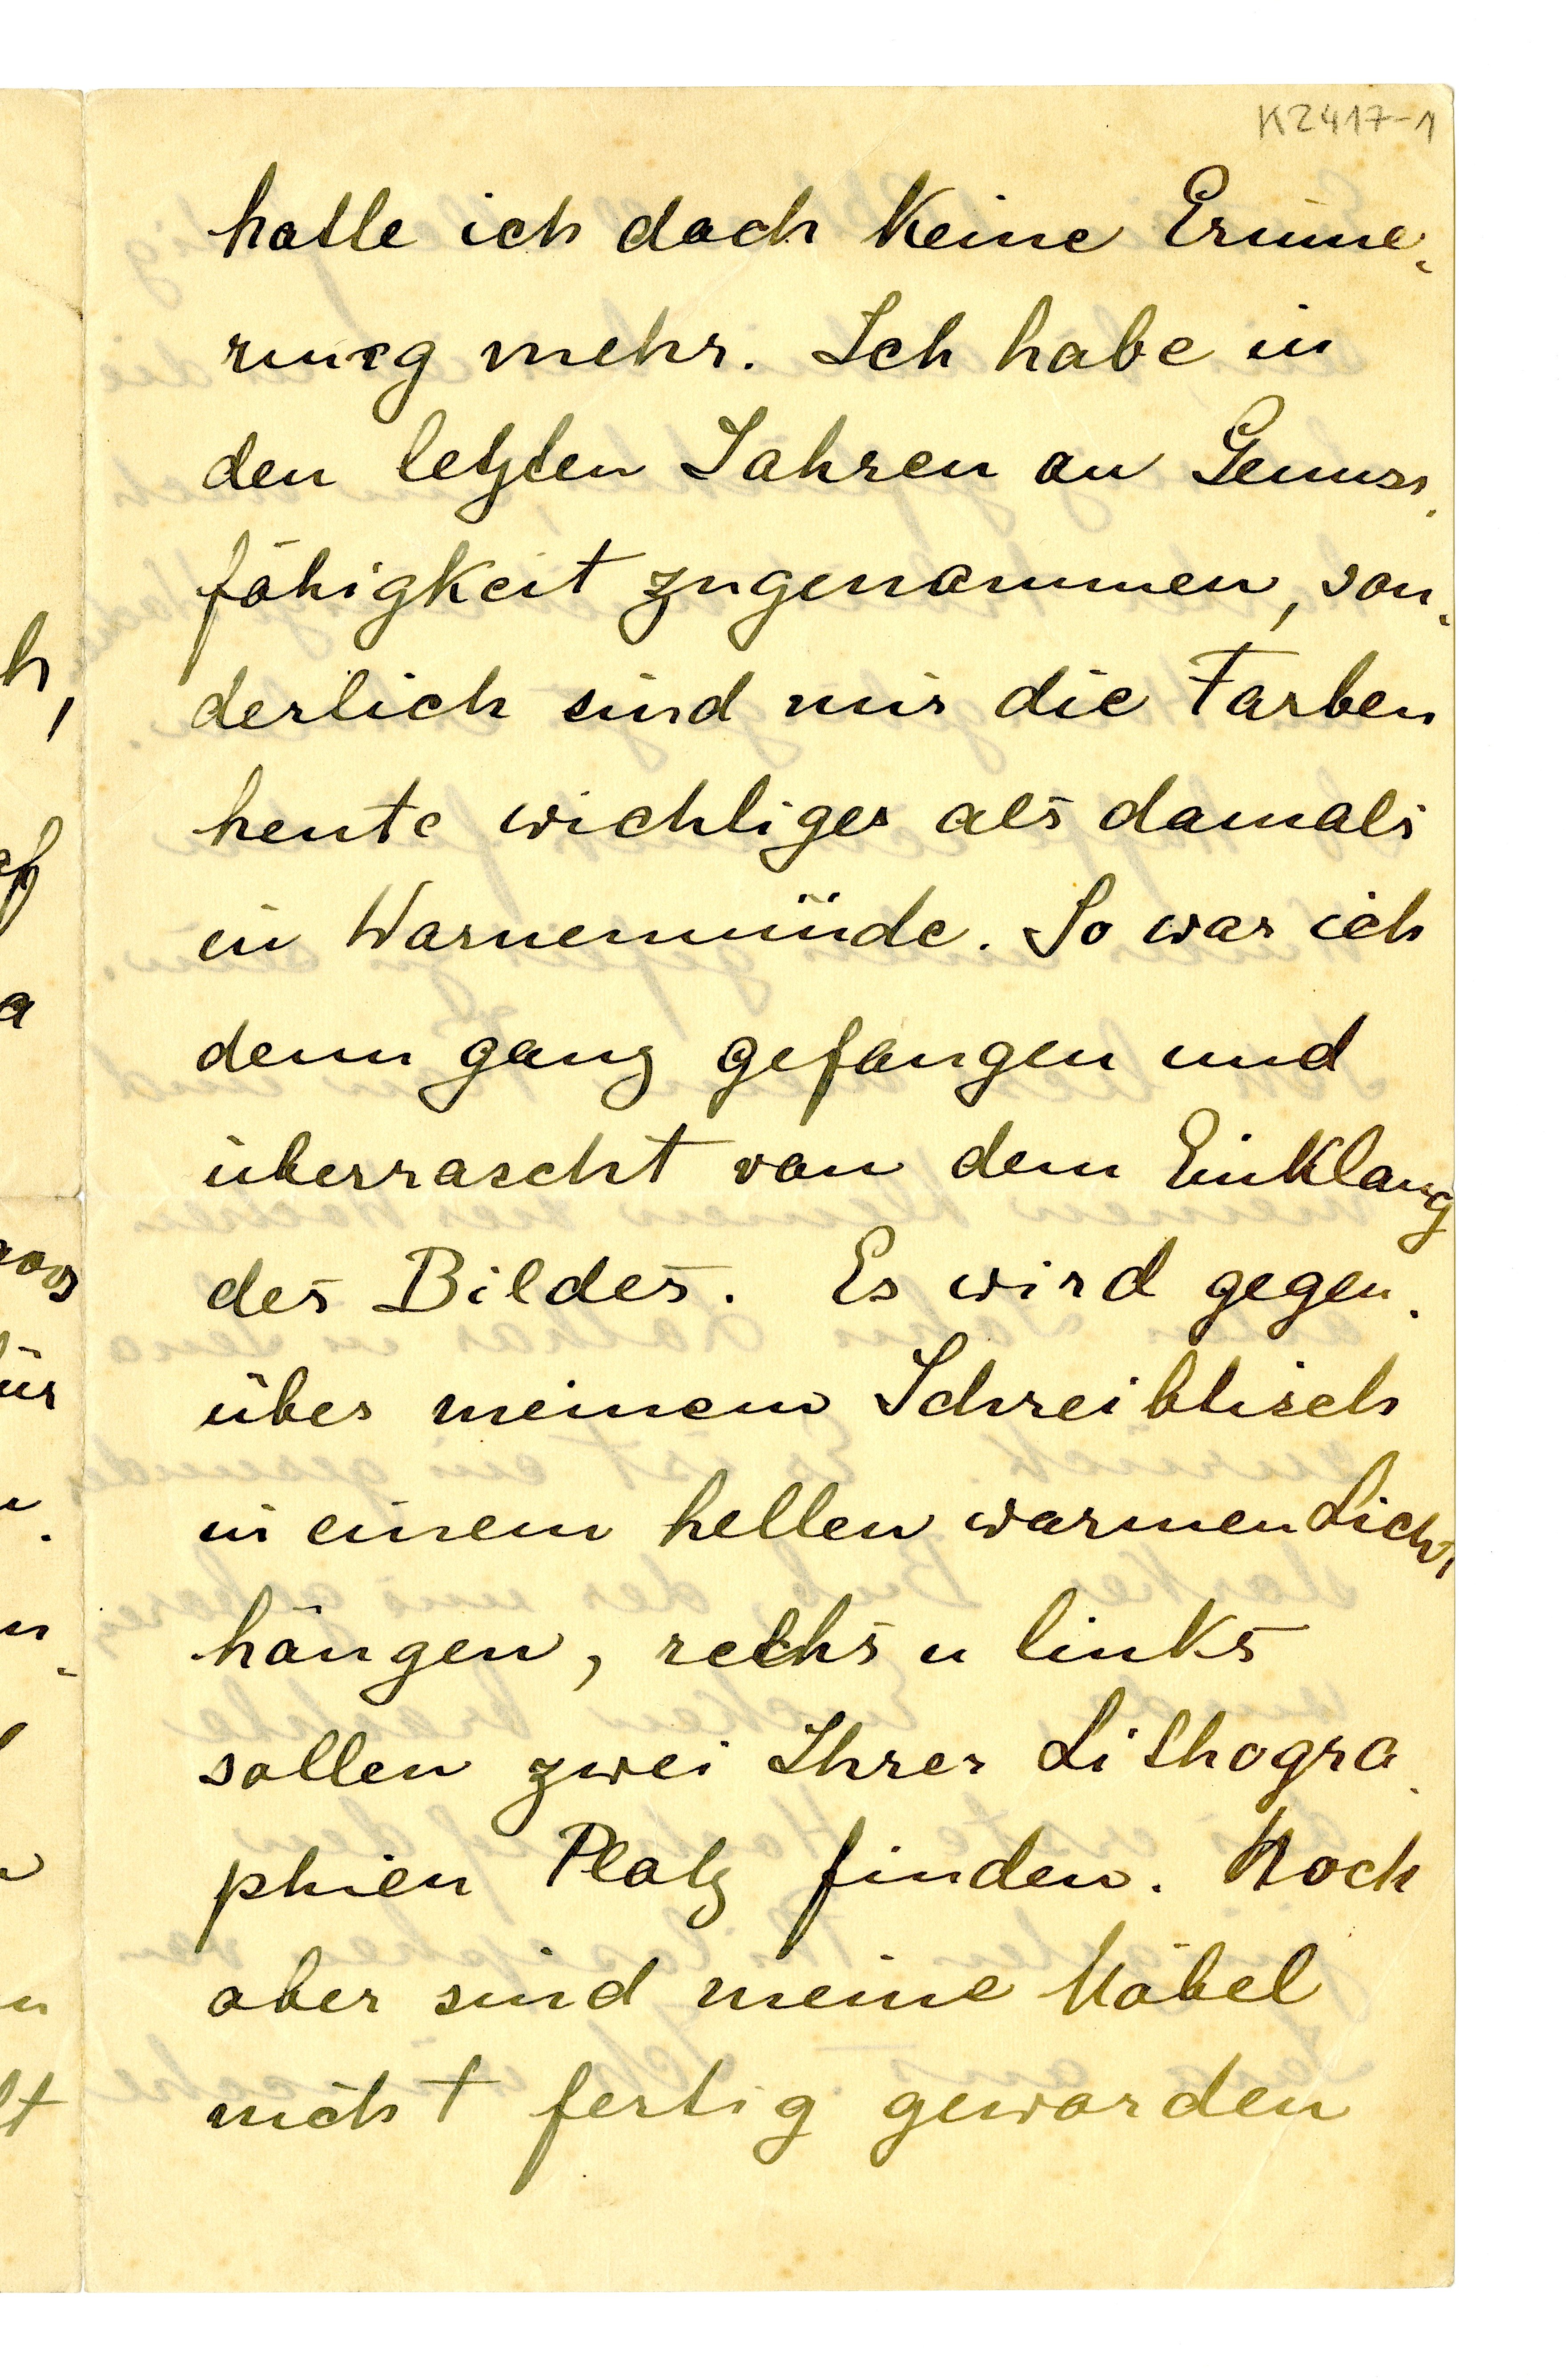 K2417-1
hatte ich doch keine Erinne-
rung mehr. Ich habe in
den letzten Jahren an Genuss-
fähigkeit zugenommen, son-
derlich sind mir die Farben
heute wichtiger als damals
in Warnemünde. So war ich
denn ganz gefangen und
überrascht von dem Einklang
des Bildes. Es wird gegen-
über meinem Schreibtisch
in einem hellen warmen Licht
hängen, rechs u links
sollen zwei Ihrer Lithogra-
phien Platz finden. Noch
aber sind meine Möbel
nicht fertig geworden